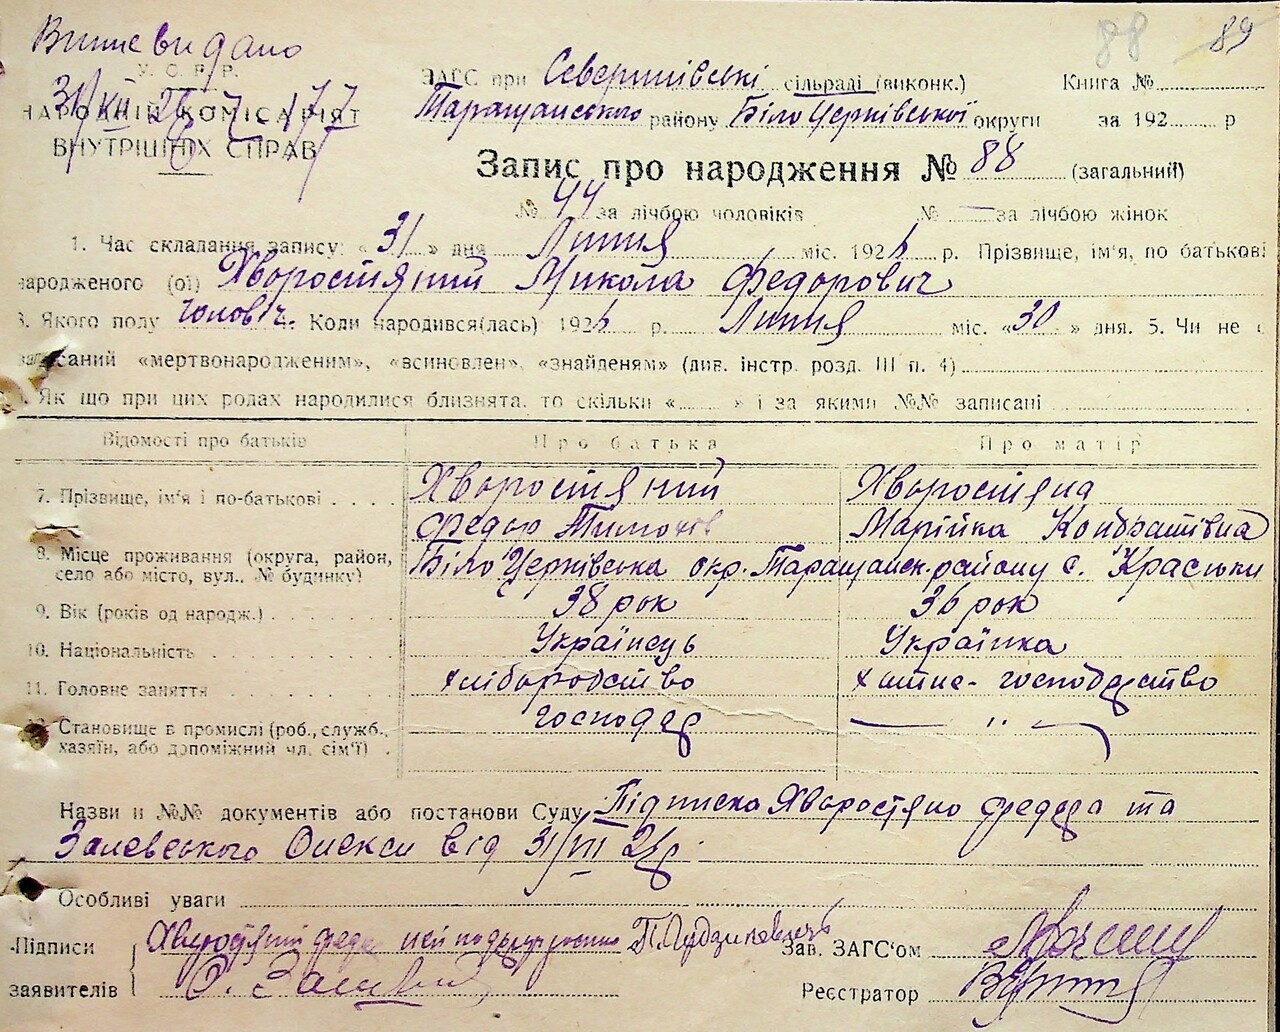 88 89
Витяг видано
У. С. Р. Р.
31/XII 26
НАРОДНІЙ КОМІСАРІЯТ
ВНУТРІШНІХ СПРАВ
ЗАГС при Северинівські сільраді (виконк.) Книга №
Таращанського району Біло Церківської округи за 192 р
Запис про народження № 88 (загальний)
№ 44 за лічбою чоловіків № — за лічбою жінок
1. Час складання запису: « 31 » дня Липня міс. 1926 р. Прізвище, ім'я, по батькові
народженого (ої) Хворостяний Микола Федорович
3. Якого полу чолов'ч. Коли народився(лась) 1926 р. Липня міс. «30» дня. 5. Чи не є
записаний «мертвонародженим», «всиновлен», «знайденям» (див. інстр. розд. III п. 4)
Як що при цих родах народилися близнята, то скільки « » і за якими №№ записані
Відомості про батьків Про батька Про матір
7. Прізвище, ім'я і по-батькові Хворостяний Хворостяна
Федор Тимохів Марійка Кондратівна
8. Місце проживання (округа, район, село або місто, вул., № будинку) Біло Церківська окр. Таращанск. району с. Красюки
9. Вік (років од народж.) 38 рок 36 рок
10. Національність Українець Українка
11. Головне заняття хліборобство хатнє-господарство
12. Становище в промислі (роб., служб., хазяїн, або допоміжний чл. сім'ї) господар — " —
Назви и №№ документів або постанови Суду Підписка Хворостяно Федора та
Залевського Олекси від 31/VII 26р.
Особливі уваги
Підписи Хворостяний Федір Зав. ЗАГС'ом
заявителів О. Залевский Реєстратор